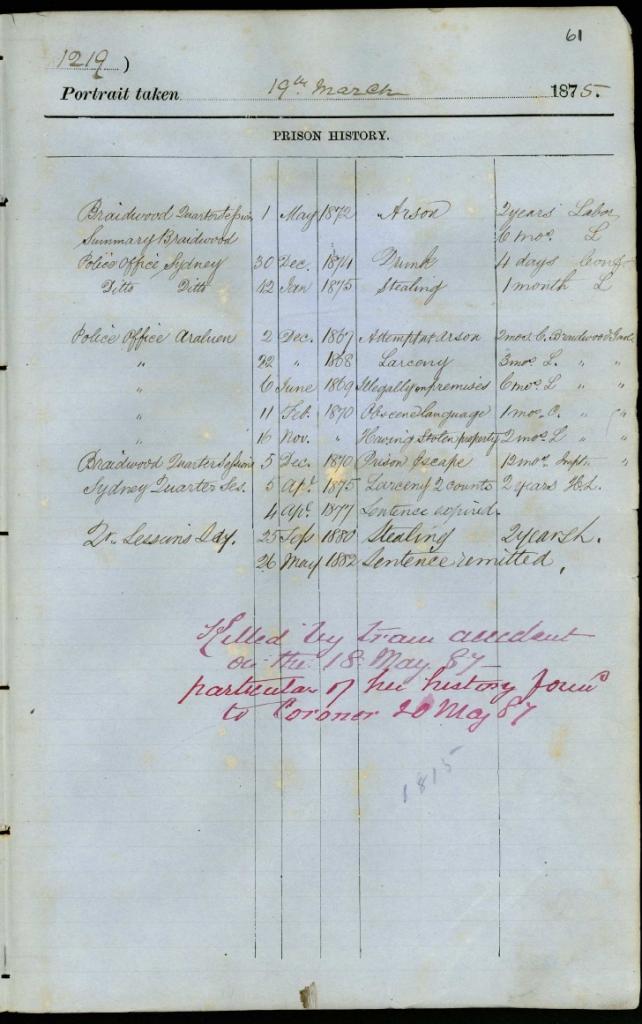 61
1219)
Portrait taken 19th March 1875.
PRISON HISTORY.
Braidwood Quarter Session 1 May 1872 Arson 2 years Labor
Summary Braidwood 6 mos. L
Police Office Sydney 30 Dec. 1874 Drunk 4 days
Ditto Ditto 12 Jan 1875 Stealing 1 month L
Police Office Araluen 2 Dec. 1867 Attempt at Arson 2 mos. C. Braidwood Gaol
" 22 " 1868 Larceny 3 mos L. " "
" 6 June 1869 Illegally on premises 6 mos L " "
" 11 Feb. 1870 Obscene language 1 mo. C. " "
" 16 Nov. " Having Stolen property 2 mos L " "
Braidwood Quarter Sessions 5 Dec. 1870 Prison Escape 12 mos.
Sydney Quarter Ses. 5 Apl. 1875 Larceny 2 counts 2 years H.L.
4 Apl. 1877 Sentence expired.
Qr. Sessions Syd. 25 1880 Stealing 2 years
26 May 1882 Sentence remitted.
Killed by tram accident
on the 18 May 87
particular of her history
to Coroner 20 May 87
1815